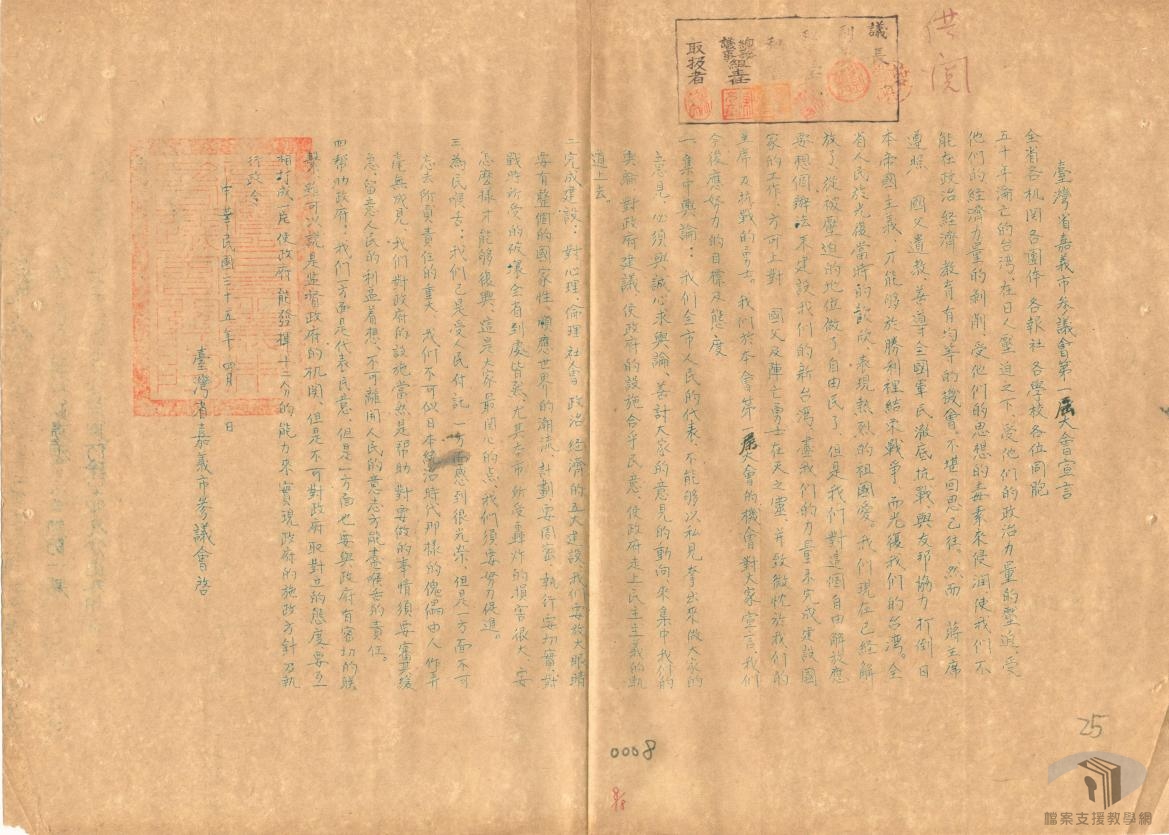 供閱
議長
取扱者
臺灣省嘉義市參議會第一屆大會宣言
全省各机関各團体各報社各學校各位同胞
五十年淪亡的台湾、在日人壓迫之下、受他们的政治力量的壓迫、受
他们的經濟力量的剥削、受他们的思想的毒素來侵润、使我们不
能在政治經濟教育有均等的機會、不堪回思已往。然而 蔣主席
遵照 國父遺教、善導全國軍民澈底抗戰、與友邦協力打倒日
本帝國主義、才能够於勝利裡結束戰爭、而光復我们的台湾。全
省人民於光復當時的歡欣、表現熱烈的祖國愛。我们現在已經解
放了、從被壓迫的地位做了自由民了、但是我们對這個自由解放應
要想個辦法、來建設我们的新台湾、盡我们的力量來完成建設國
家的工作、方可上對 國父及陣亡勇士在天之靈、并致微忱於我们的
主席及抗戰的勇士。我们於本會第一屆大會的機會對大家宣言、我们
今後應努力的目標及態度
一 集中輿論：我们全市人民的代表、不能够以私見拿出來做大家的
意見、必須與誠心求輿論、善討大家的意見的動向來集中我们的
輿論、對政府建議、使政府的設施合乎民意、使政府走上民主主義的軌
道上去。
二 完成建設：對心理、倫理、社會、政治、經濟的五大建設、我们要放大眼睛
要有整個的國家性、順應世界的潮流、計劃要周密、執行要切實、對
戰時所受的破壞全省到處皆然、尤其本市所受轟炸的損害很大、要
怎麼樣才能够復興、這是大家最関心的点、我们須要努力促進。
三 為民喉舌：我们已是受人民付託、一方面感到很光榮、但是一方面不可
忘去所負責任的重大、我们不可似日本統治時代那樣的傀儡由人作弄
毫無成見、我们對政府的設施當然是帮助、對要做的事情須要審其緩
急、留意人民的利益着想、不可離開人民的意志、方能盡喉舌的責任。
四 帮助政府：我们一方面是代表民意、但是一方面也要與政府有密切的联
繫、並可以說是监督政府的机関、但是不可對政府取對立的態度、要互
相打成一片、使政府能發揮十二分的能力來實現政府的施政方針及執
行政令。
中華民國三十五年四月 日
臺灣省嘉義市參議會啓
25
0008
檔案支援教學網